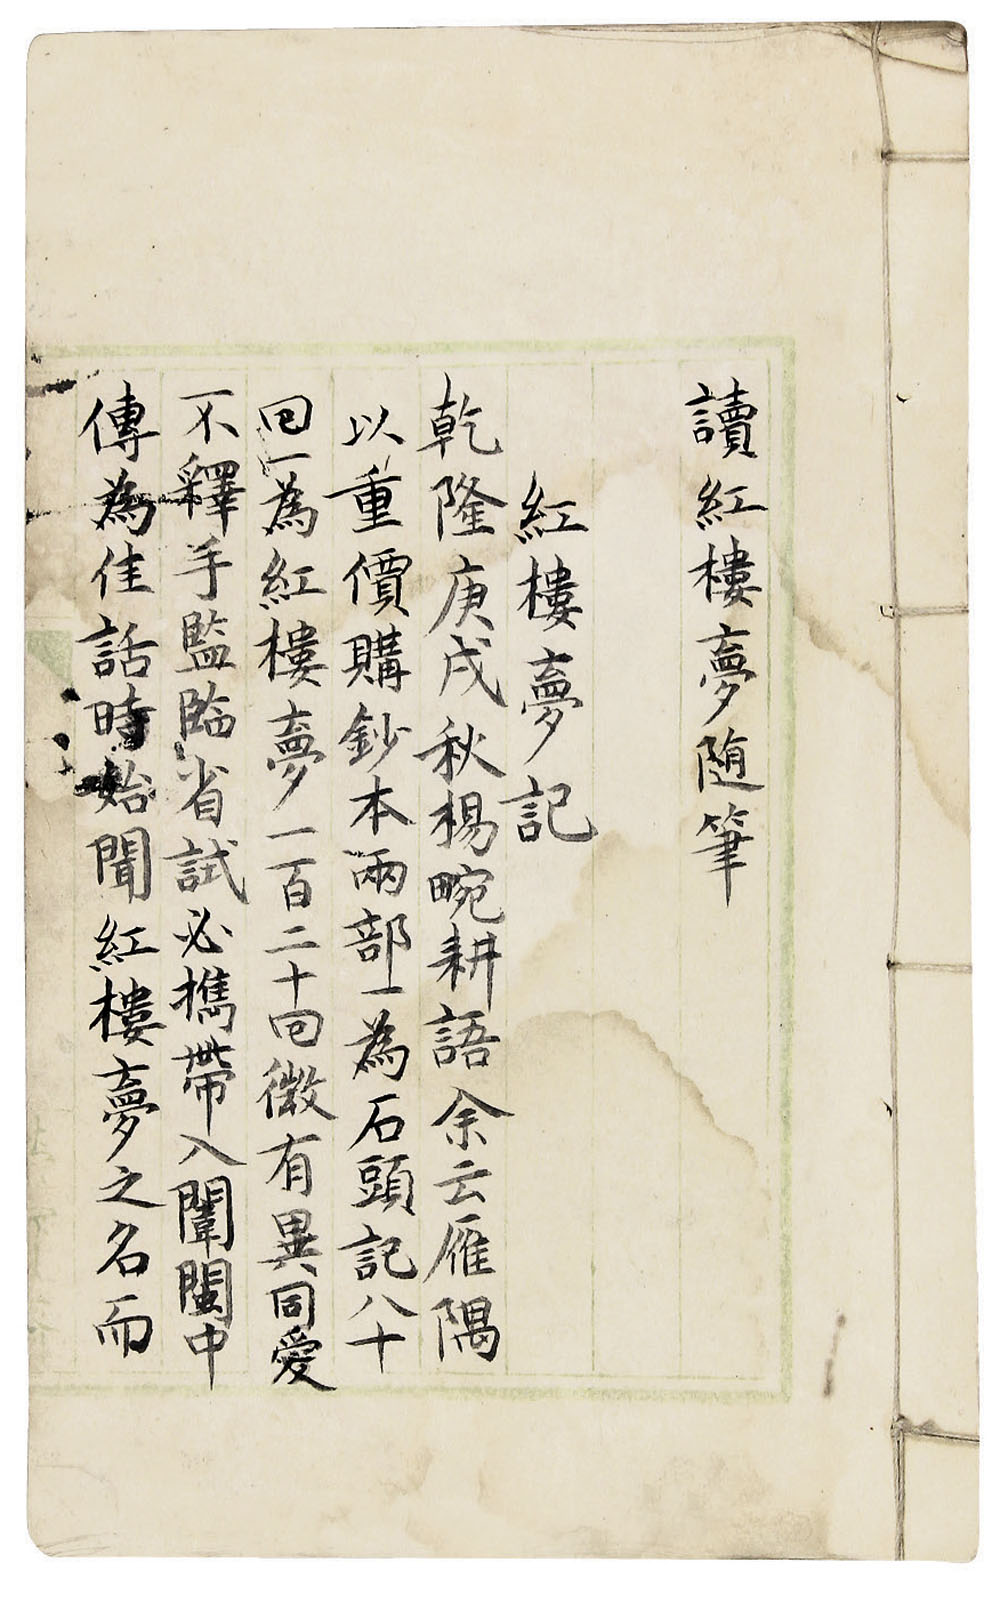 讀紅樓夢随筆
紅樓夢記
乾隆庚戌秋楊畹耕語余云雁隅
以重價購鈔本兩部一為石頭記八十
回一為紅樓夢一百二十回微有異同愛
不釋手監臨省試必攜帶入闈閩中
傳為佳話時始聞紅樓夢之名而